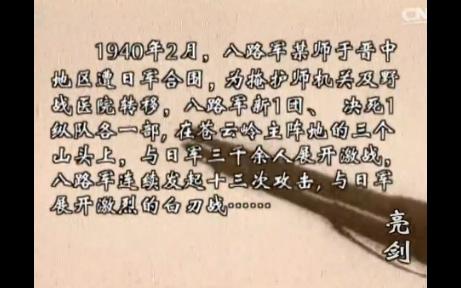 1940年2月，八路军某师于晋中
地区遭日军合围，为掩护师机关及野
战医院转移，八路军新1团、决死1
纵队各一部，在苍云岭主阵地的三个
山头上，与日军三千余人展开激战，
八路军连续发起十三次攻击，与日军
展开激烈的白刃战……
亮
剑